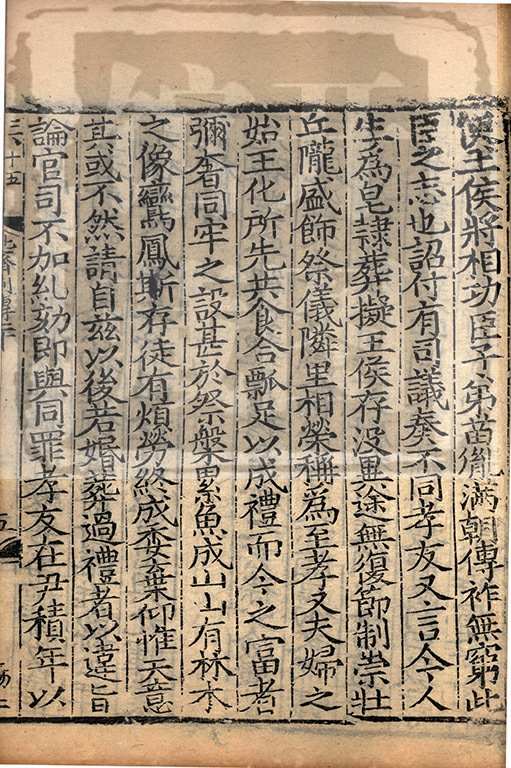 使王侯將相功臣子弟苗胤滿朝傳祚無窮此
臣之志也詔付有司議奏不同孝友又言今人
生爲皂隸葬擬王侯存没異途無復節制崇壯
丘隴盛飾祭儀隣里相榮稱爲至孝又夫婦之
始王化所先共食合瓢足以成禮而今之富者
彌奢同牢之設甚於祭槃累魚成山山有林木
之像鸞鳳斯存徒有煩勞終成委棄仰惟天意
其或不然請自兹以後若婚葬過禮者以違旨
論官司不加糺劾即與同罪孝友在尹積年以